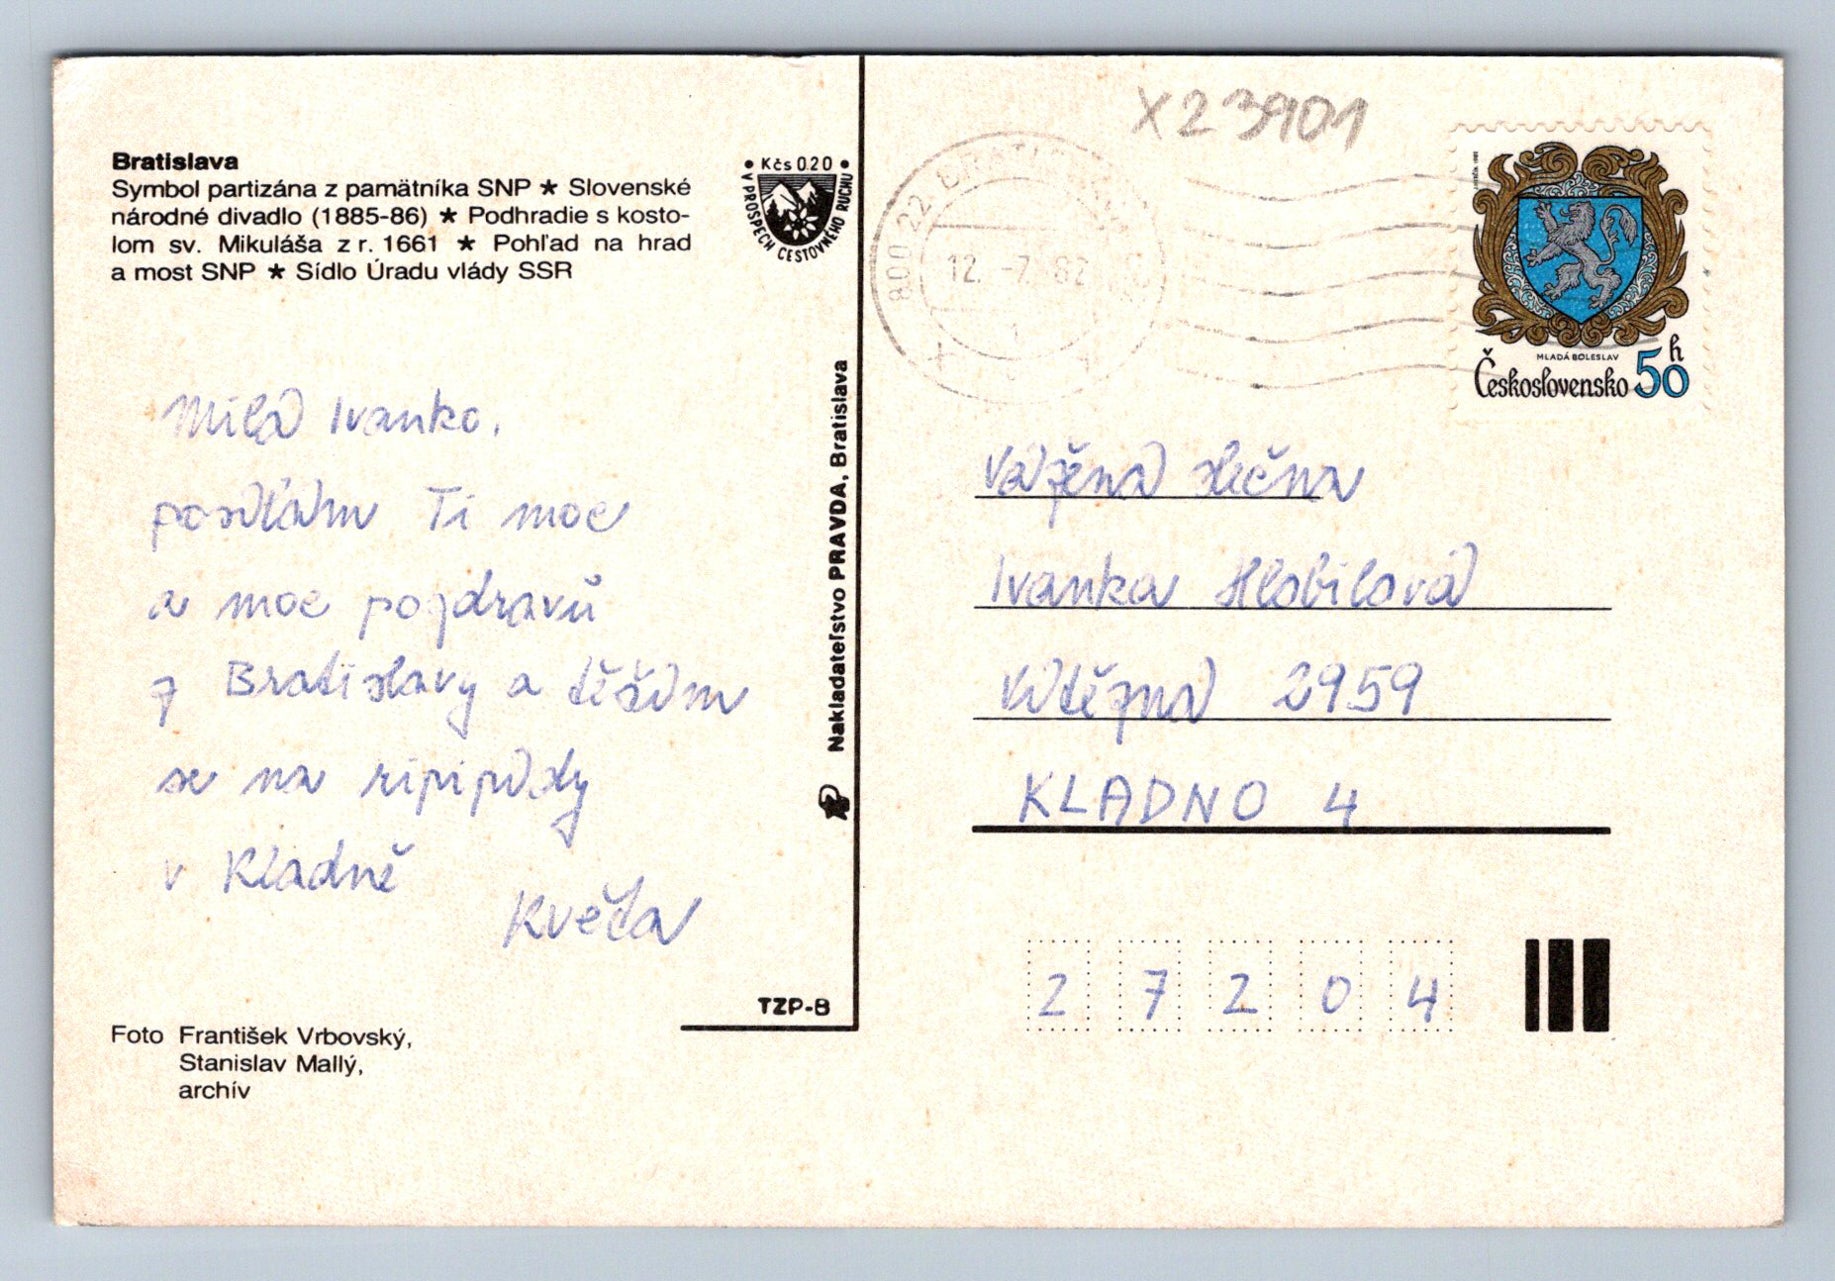 Bratislava
Symbol partizána z pamätníka SNP ★ Slovenské
národné divadlo (1885-86) ★ Podhradie s kosto-
lom sv. Mikuláša z r. 1661 ★ Pohľad na hrad
a most SNP ★ Sídlo Úradu vlády SSR
• Kčs 020 •
V PROSPECH CESTOVNÉHO RUCHU
Milá Ivanko,
posílám Ti moc
a moc pozdravů
z Bratislavy a těším
se na
v Kladně
Květa
Foto František Vrbovský,
Stanislav Mallý,
archív
TZP-B
Nakladateľstvo PRAVDA, Bratislava
X23901
800 22 BRATISLAVA
12. -7. 82
MLADÁ BOLESLAV
Československo 50 h
Vážená slečna
Ivanka Hlobilová
Vítězná 2959
KLADNO 4
2 7 2 0 4